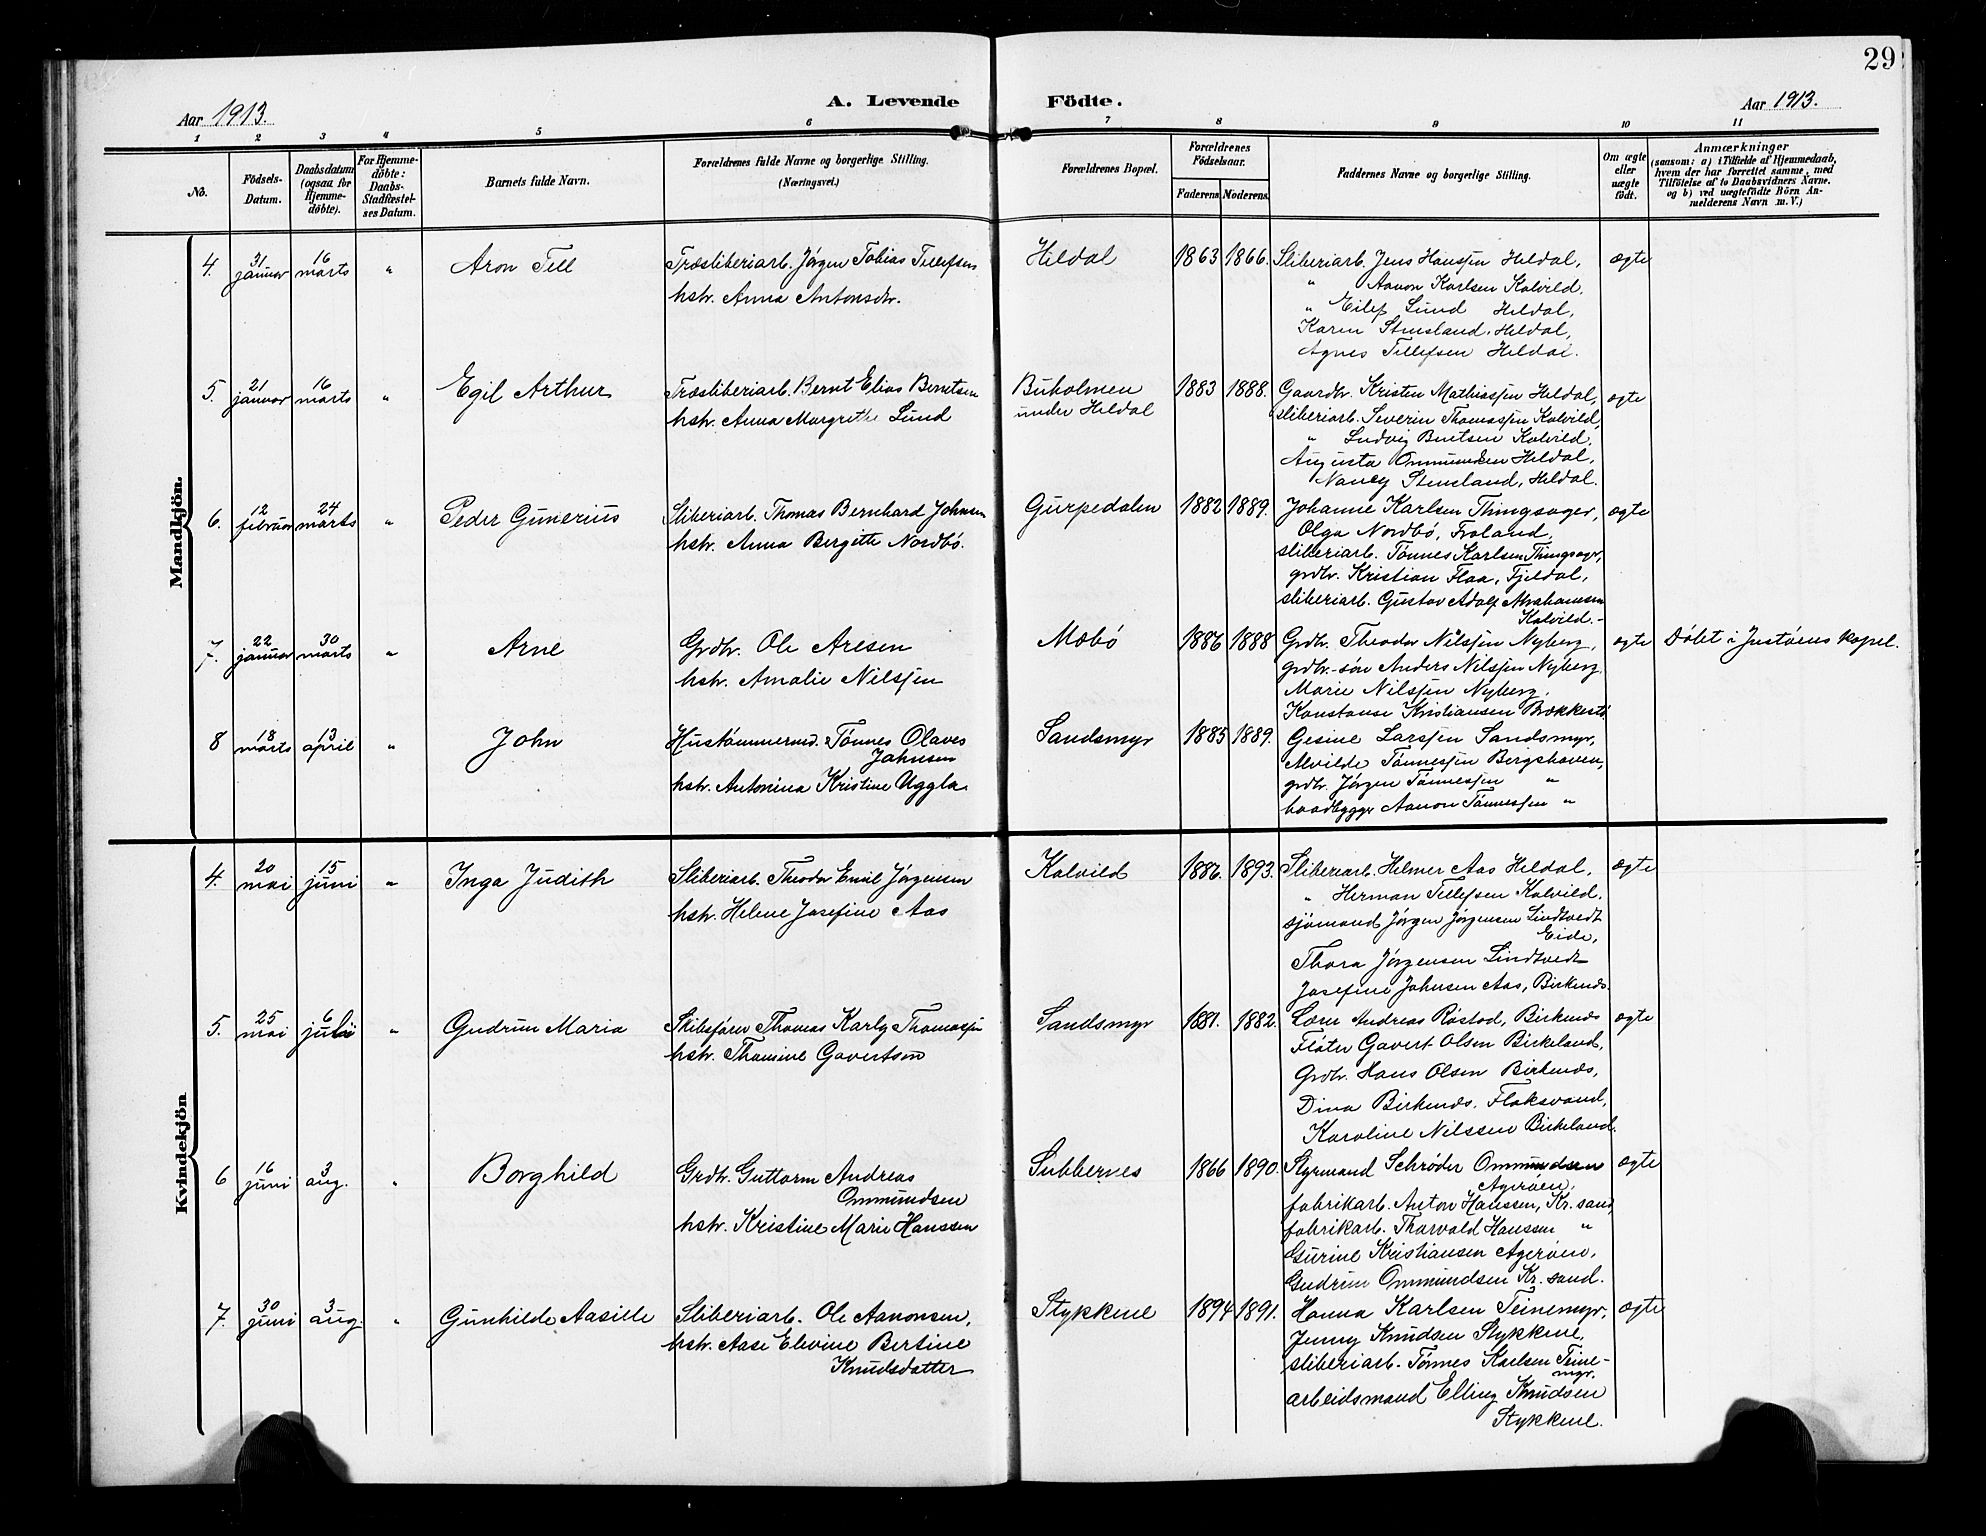 29
Aar 1913.
A. Levende Födte.
Aar 1913.
1 2 3 4 5 6 7 8 9 10 11
No.
Födsels-Datum.
Daabsdatum (ogsaa for Hjemme-döbte).
For Hjemme-döbte: Daabs-Stadfæstel-ses Datum.
Barnets fulde Navn.
Forældrenes fulde Navne og borgerlige Stilling.
(Næringsvei.)
Forældrenes Bopæl.
Forældrenes Födselsaar.
Faderens. Moderens.
Faddernes Navne og borgerlige Stilling.
Om ægte eller uægte födt.
Anmærkninger
(saasom: a) i Tilfælde af Hjemmedaab,
hvem der har forrettet samme, med
Tilföielse af to Daabsvidners Navne.
og b) ved uægtefödte Börn An-
melderens Navn m. V.)
Mandkjön.
4. 31 januar 16 marts " Aron Tell
Træsliberiarb. Jørgen Tobias Tellefsen
hstr. Anna Antonsdtr.
Heldal 1863 1866.
Sliberiarb. Jens Hanssen Heldal,
" Aanon Karlsen Kalvild.
" Eilef Lund Heldal,
Karen Stensland, Heldal,
Agnes Tellefsen Heldal.
ægte
5. 21 januar 16 marts " Egil Arthur
Træsliberiarb. Bernt Elias Berntsen
hstr. Anna Margrethe Lund
Buholmen
under Heldal
1883 1888.
Gaardbr. Kristen Mathiassen Heldal,
sliberiarb. Severin Thomassen Kalvild,
" Ludvig Berntsen Kalvild.
Augusta Ommundsen Heldal,
Nancy Stensland, Heldal.
ægte
6. 12 februar 24 marts " Peder Gunerius
Sliberiarb. Thomas Bernhard Johnsen
hstr. Anna Bergitte Nordbö.
Gurpedalen 1882 1889.
Johanne Karlsen Thingsager,
Olga Nordbö, Froland,
sliberiarb. Tönnes Karlsen Thingsagr,
grdbr. Kristian Flaa, Fjeldal,
sliberiarb. Gustav Adolf Abrahamsen
Kalvild.-
ægte
7. 22 januar 30 marts " Arne
Grdbr. Ole Aresen
hstr. Amalie Nilssen
Mæbö 1886 1888
Grdbr. Theodor Nilssen Nyberg,
grdbr-sön Anders Nilssen Nyberg.
Marie Nilssen Nyberg.
Konstanse Kristiansen Brækkestö
ægte
Döbt i Justöens kapel.
8 18 marts 13 april " John
Hustömmermd. Tönnes Olaves
Johnsen
hstr. Antonina Kristine Uggla
Sandsmyr 1885 1889.
Gesine Larssen Sandsmyr,
Alvilde Tönnessen Bergshaven,
grdbr. Jörgen Tönnessen "
baadbyggr Aanon Tönnessen "
Kvindekjön
4. 20 mai 15 juni " Inga Judith
Sliberiarb. Theodor Emil Jørgensen
hstr. Helene Josefine Aas
Kalvild 1886. 1893.
Sliberiarb. Helmer Aas Heldal,
" Herman Tellefsen Kalvild.
sjömand Jørgen Jørgensen Lindtvedt
Eide,
Thora Jørgensen Lindtvedt
Josefine Johnsen Aas, Birkenæs.
ægte
5. 25 mai 6 juli " Gudrun Maria
Skibsförer Thomas Karly Thomassen
hstr. Thomine Gavertsen
Sandsmyr 1881. 1882.
Lærer Andreas Röstad, Birkenæs
Flöter Gavert Olsen Birkeland,
Grdbr. Hans Olsen Birkenæs,
Dina Birkenæs. Flaksvand,
Karoline Nilssen Birkeland.
ægte
6 16 juni 3 aug. " Borghild
Grdbr. Guttorm Andreas
Ommundsen
hstr. Kristine Marie Hanssen
Subbernes 1866 1890.
Styrmand Schrøder Ommundsen
Agerøen,
fabrikarb. Anton Hanssen, Kr. sand,
fabrikarb. Thorvald Hanssen "
Gurine Kristiansen Agerøen,
Gudrun Ommundsen Kr. sand.
ægte
7. 30 juni 3 aug. " Gunhilde Aasille
Sliberiarb. Ole Aanonsen,
hstr. Aase Elevine Bertine
Knudsdatter
Stykkene 1894 1891.
Hanna Karlsen Teinemyr,
Jenny Knudsen Stykkene,
sliberiarb. Tönnes Karlsen Teine-
myr.
arbeidsmand Elling Knudsen
Stykkene.
ægte